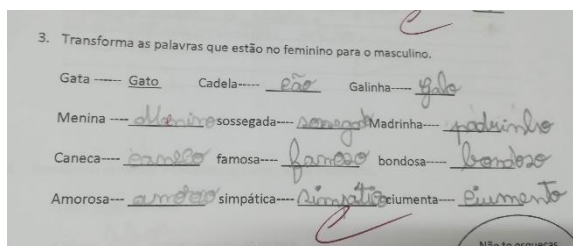 3. Transforma as palavras que estão no feminino para o masculino.
Gata ------ Gato Cadela----- cão Galinha----- galo
Menina ---- Menino sossegada---- Madrinha---- padrinho
Caneca---- caneco famosa---- famoso bondosa----- bondoso
Amorosa--- simpática---- simpático ciumenta---- ciumento
Não te esqueças